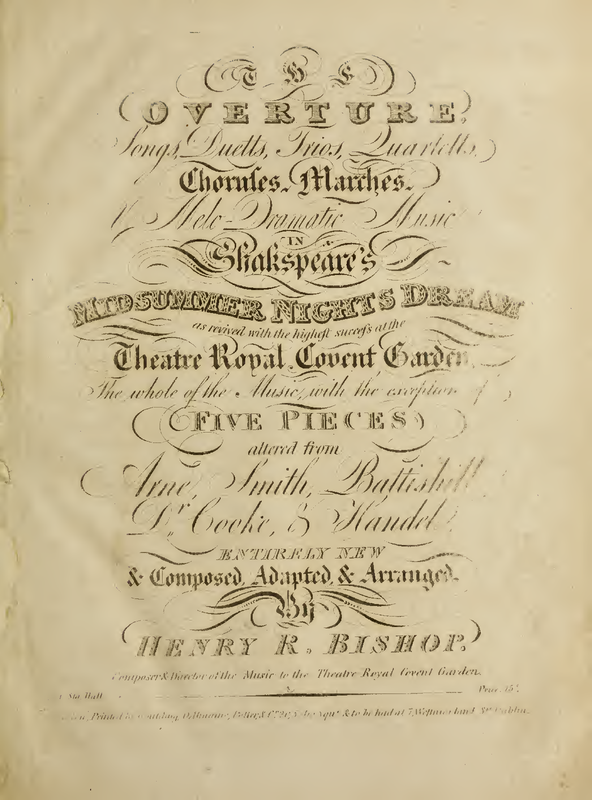 THE
OVERTURE,
Songs, Duetts, Trios, Quartetts,
Chorusses, Marches,
& Melo-Dramatic Music
IN
Shakspeare's
MIDSUMMER NIGHTS DREAM
as revived with the highest success at the
Theatre Royal, Covent Garden
The whole of the Music, with the exception of
FIVE PIECES
altered from
Arne, Smith, Battishill
Dr. Cooke, & Handel
ENTIRELY NEW
& Composed, Adapted, & Arranged,
By
HENRY R. BISHOP.
Composer & Director of the Music to the Theatre Royal Covent Garden.
Sta. Hall Price 15s.
Printed by Goulding, D'Almaine, Potter & Co. 20, Soho Sqre. & to be had at 7, Westmorland St. Dublin.